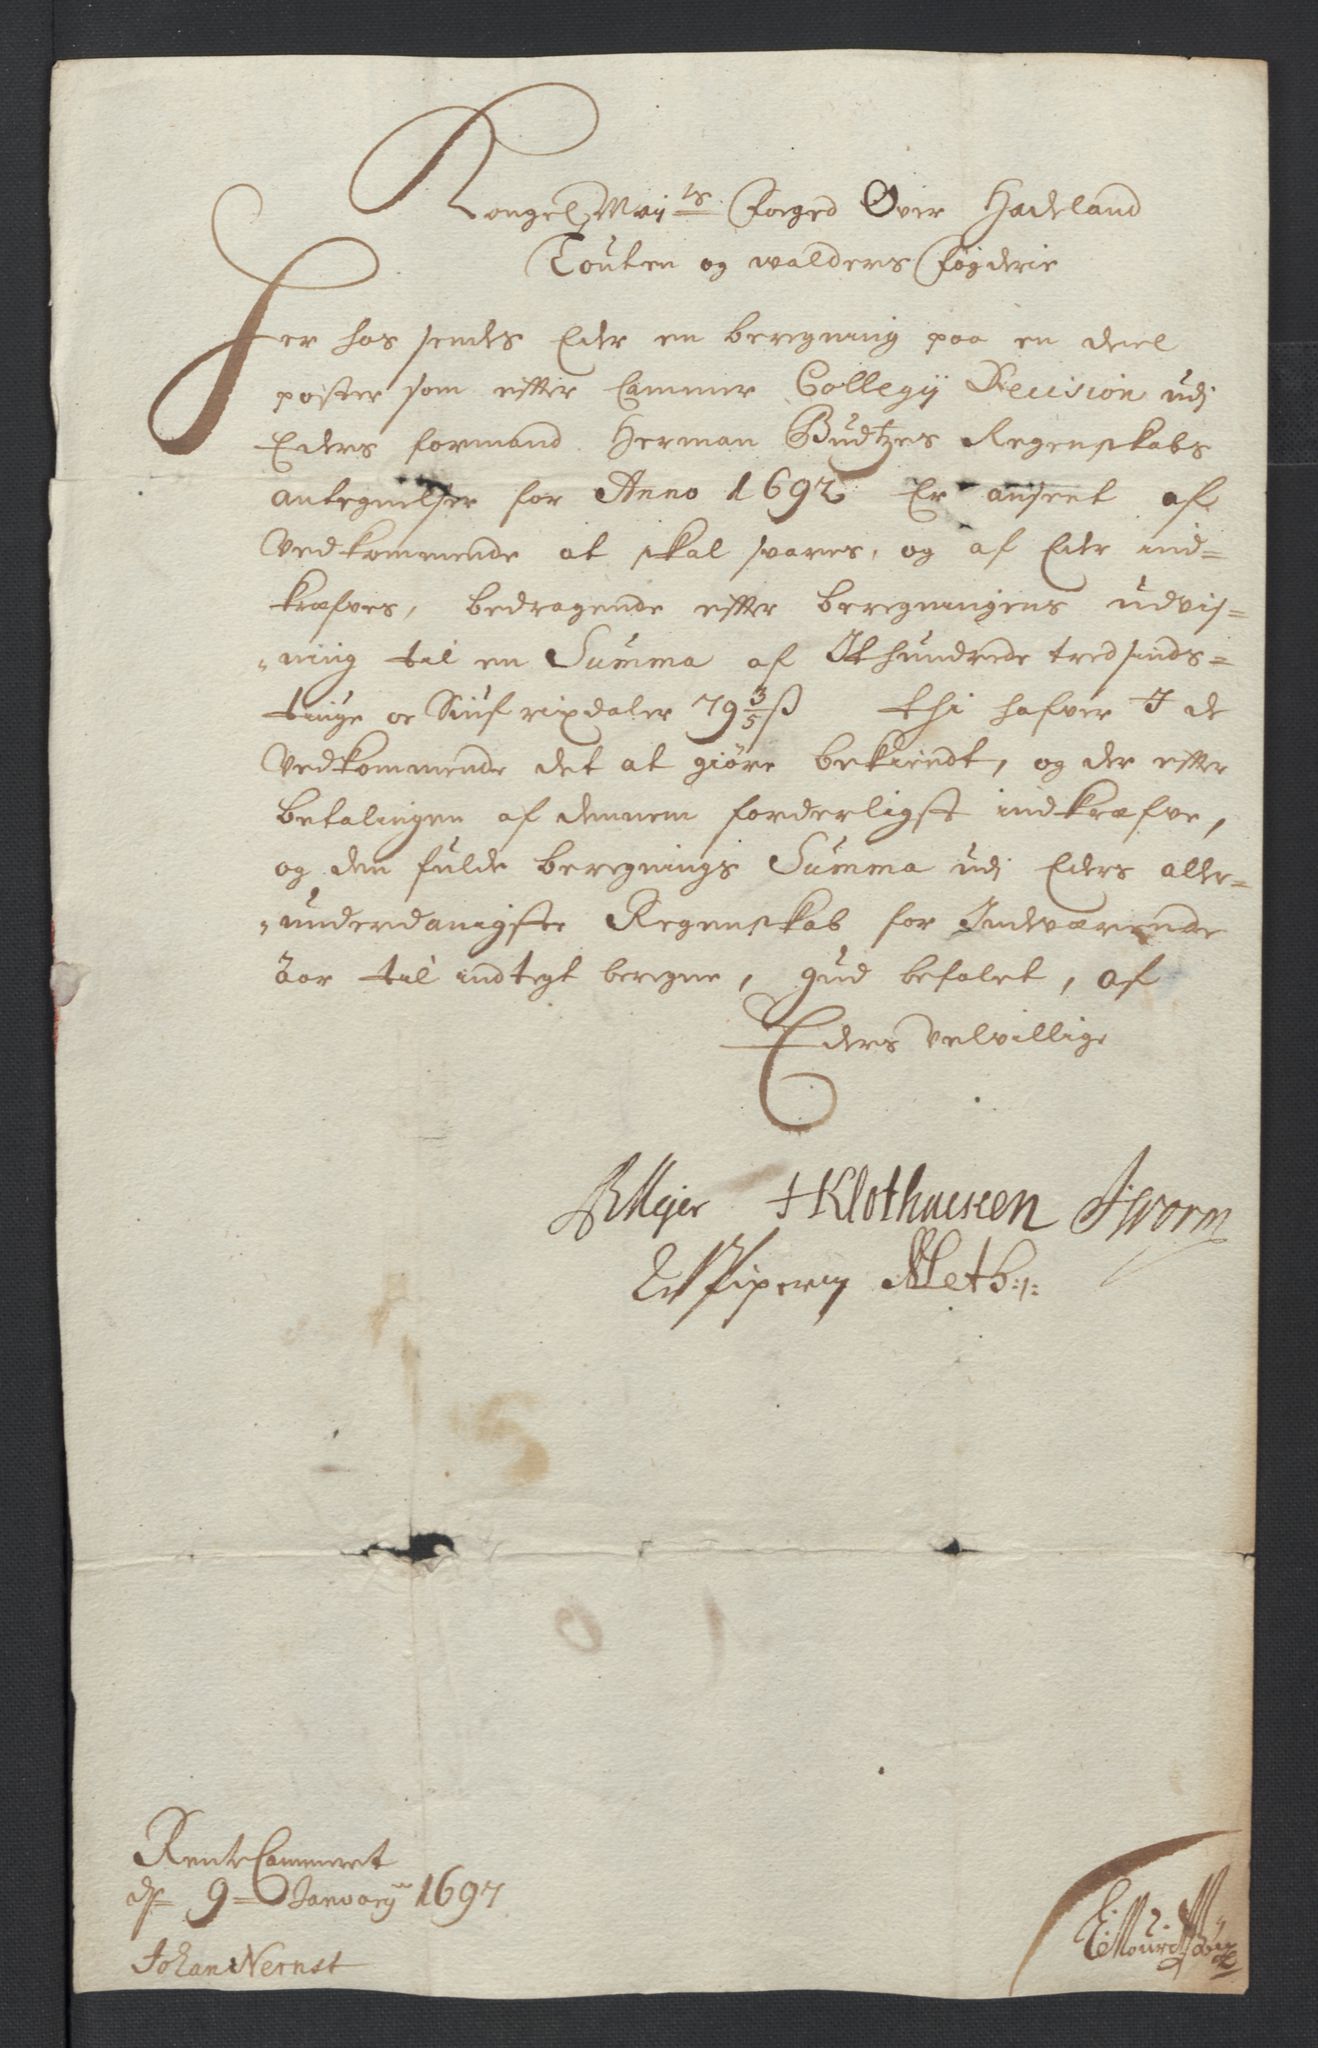 Kongel May:ts Foeged Over Hadeland
Touten og walders Fögderie
Her hos sendes Eder en beregning paa en deel
poster som effter Cammer Collegij Decision udj
Eders formand Herman Budtzes Regenskabs
antegnelser for Anno 1692 Er anseet af
Vedkommende at skal svares, og af Eder ind=
kræfves, bedragende effter beregningens udvis=
=ning til en Summa af Et hundrede tredsinds=
tiuge oc Siuf rixdaler 79 3/5 ß thi hafver I de
Vedkommende det at giöre bekiendt, og der effter
betalingen af dennem forderligst indkræfve,
og den fulde beregnings Summa udj Eders aller=
=underdanigste Regenskab for Indeværende
Aar til indtegt beregne, Gud befalet, af
Eders velvillige
B Meyer H Klothacken J Worm
Piper Meth:
RenteCammeret
d 9 January 1697
Johan Nernst